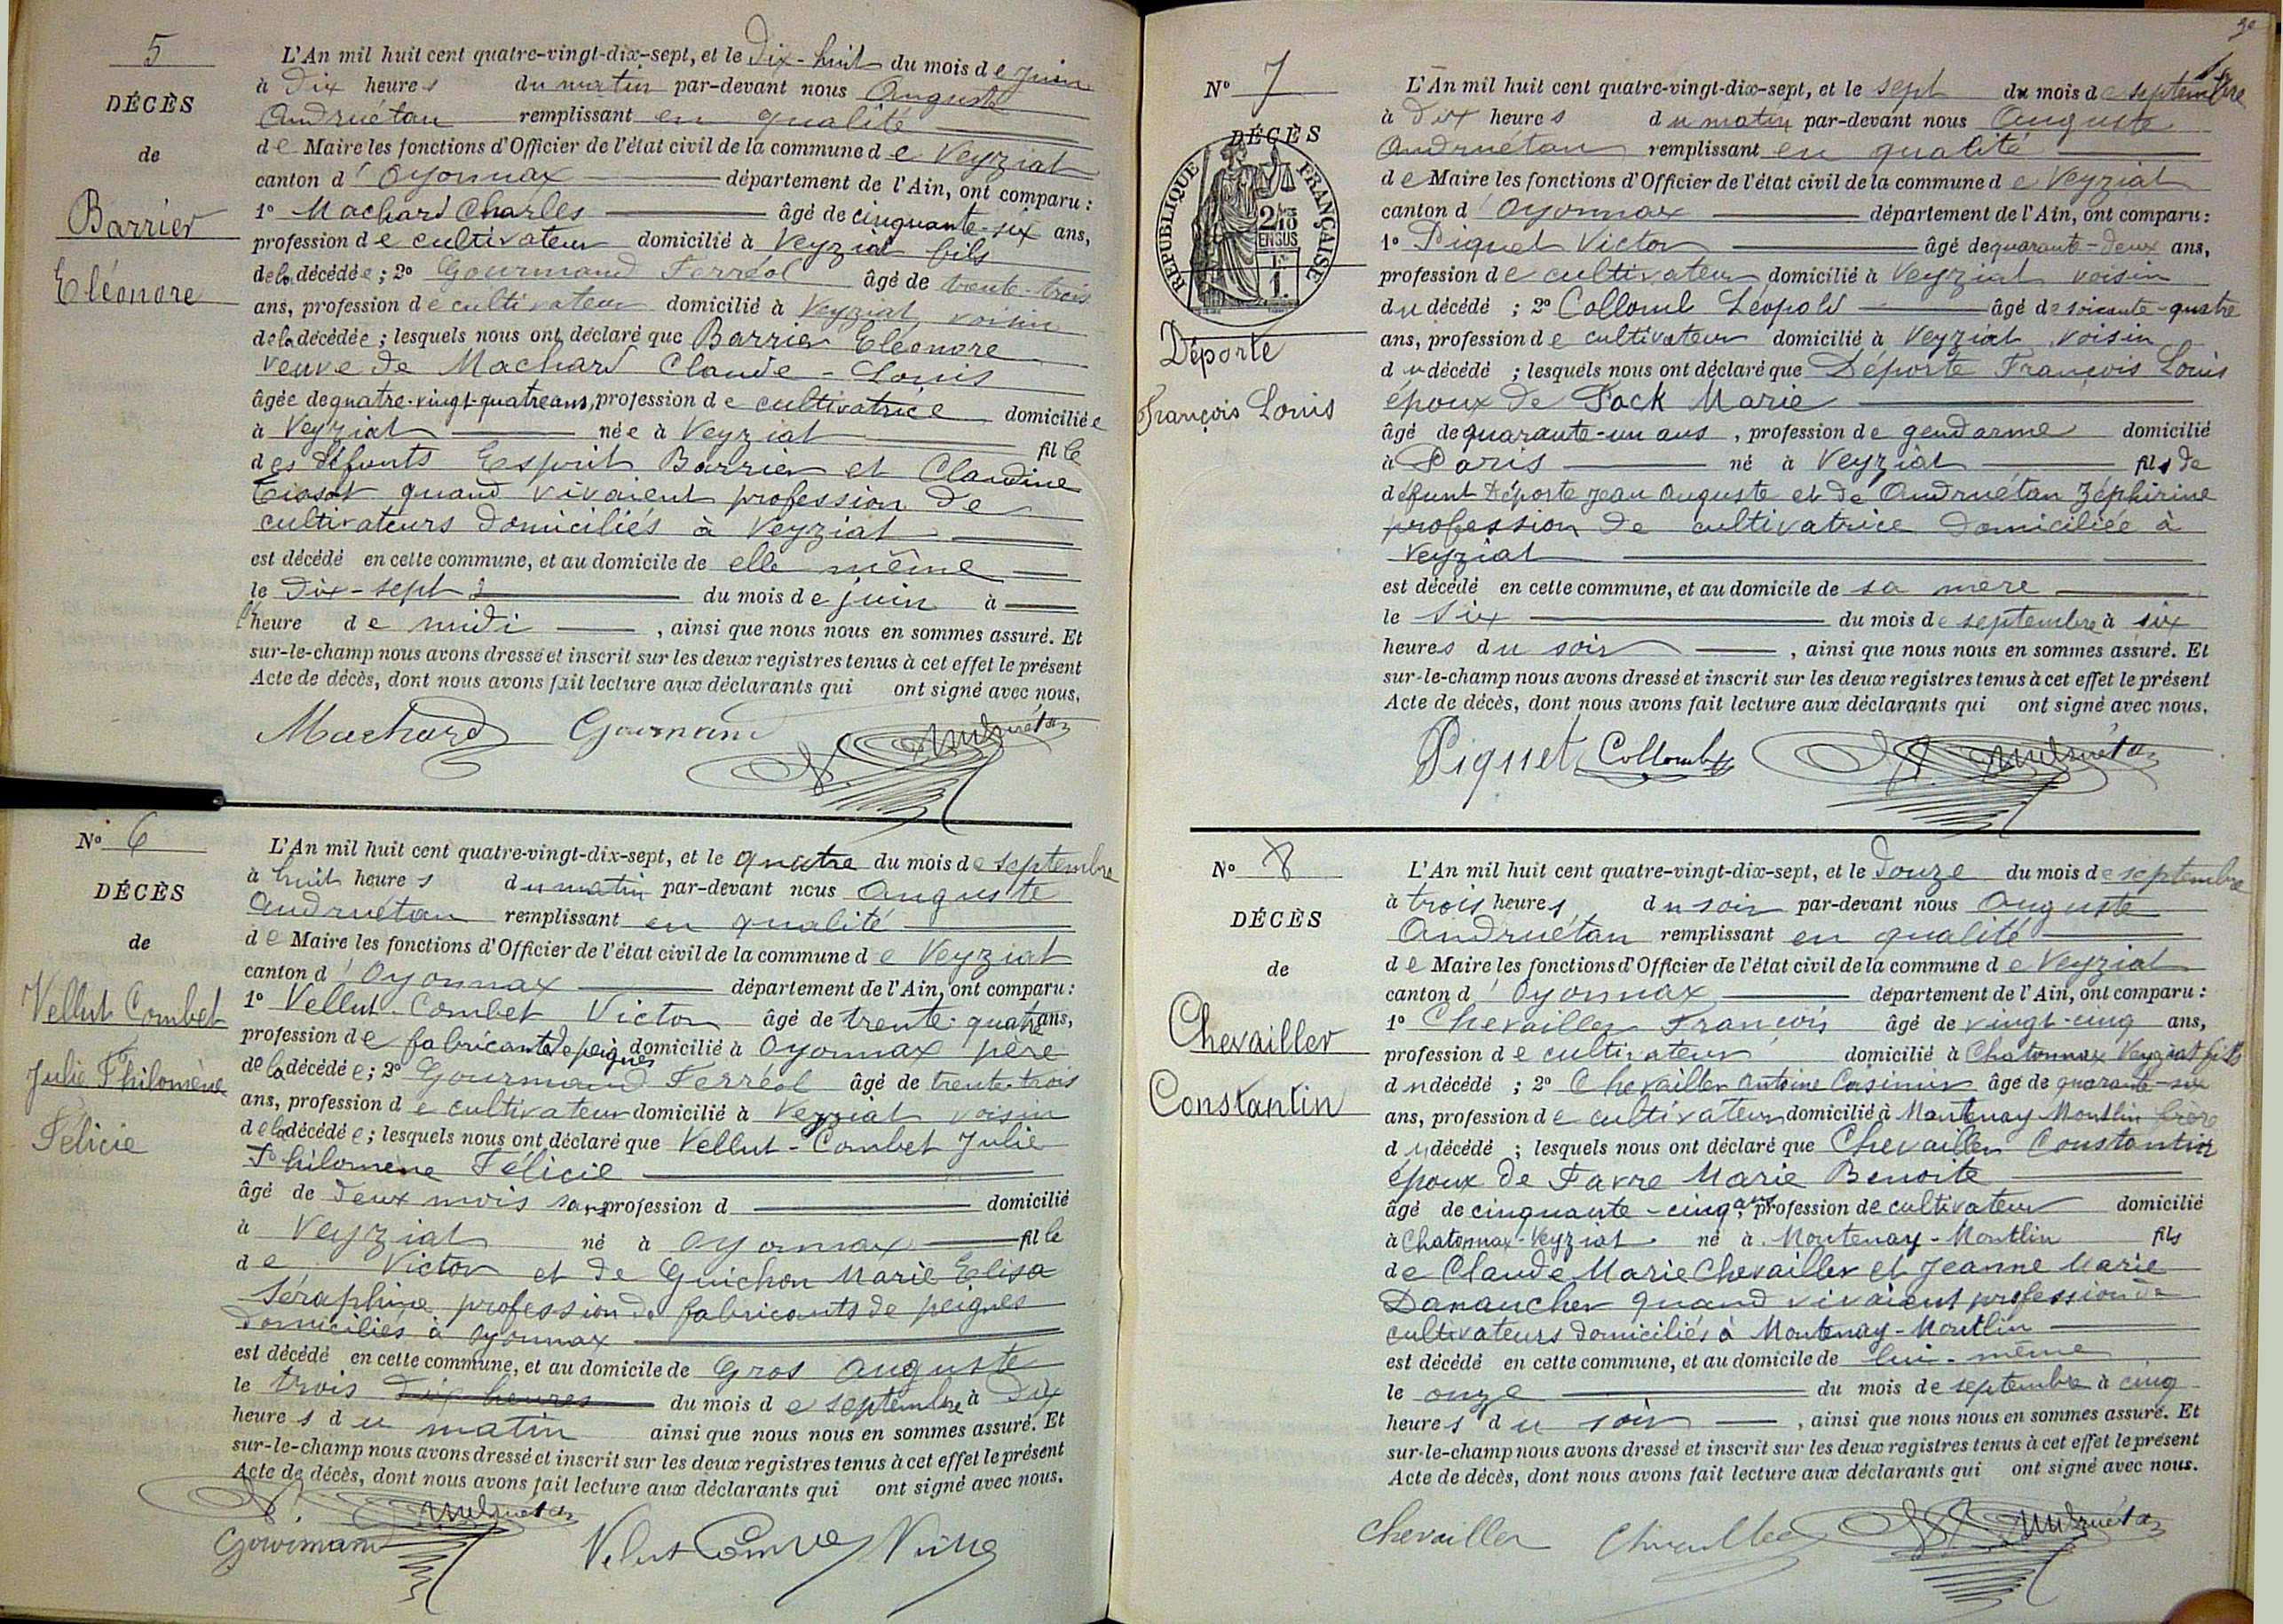 5
DÉCÈS
de
Barrier
Eléonore
L'An mil huit cent quatre-vingt-dix-sept, et le Dix-huit du mois de Juin
à Dix heures du matin par-devant nous Auguste
Andruétan remplissant en qualité
de Maire les fonctions d'Officier de l'état civil de la commune de Veyziat
canton d'Oyonnax département de l'Ain, ont comparu :
1° Machard Charles âgé de cinquante-six ans,
profession de cultivateur domicilié à Veyziat fils
de la décédée ; 2° Gourmand Ferréol âgé de trente-trois
ans, profession de cultivateur domicilié à Veyziat voisin
de la décédée ; lesquels nous ont déclaré que Barrier Eléonore
veuve de Machard Claude-Louis
âgée de quatre-vingt-quatre ans, profession de cultivatrice domiciliée
à Veyziat née à Veyziat fille
des défunts Esprit Barrier et Claudine
quand vivaient profession de
cultivateurs domiciliés à Veyziat
est décédé en cette commune, et au domicile de elle même
le Dix-sept du mois de juin à
heure de midi , ainsi que nous nous en sommes assuré. Et
sur-le-champ nous avons dressé et inscrit sur les deux registres tenus à cet effet le présent
Acte de décès, dont nous avons fait lecture aux déclarants qui ont signé avec nous.
Machard Gourmand Andruétan
N° 6
DÉCÈS
de
Vellut-Combet
Julie Philomène
Félicie
L'An mil huit cent quatre-vingt-dix-sept, et le quatre du mois de septembre
à huit heures du matin par-devant nous Auguste
Andruétan remplissant en qualité
de Maire les fonctions d'Officier de l'état civil de la commune de Veyziat
canton d'Oyonnax département de l'Ain, ont comparu :
1° Vellut-Combet Victor âgé de trente-quatre ans,
profession de fabricant de peignes domicilié à Oyonnax père
de la décédée ; 2° Gourmand Ferréol âgé de trente-trois
ans, profession de cultivateur domicilié à Veyziat voisin
de la décédée ; lesquels nous ont déclaré que Vellut-Combet Julie
Philomène Félicie
âgé de deux mois sans profession d domicilié
à Veyziat né à Oyonnax fille
de Victor et de Guichon Marie Elisa
Séraphine profession de fabricants de peignes
domiciliés à Oyonnax
est décédé en cette commune, et au domicile de Gros Auguste
le trois dix heures du mois de septembre à Dix
heures du matin ainsi que nous nous en sommes assuré. Et
sur-le-champ nous avons dressé et inscrit sur les deux registres tenus à cet effet le présent
Acte de décès, dont nous avons fait lecture aux déclarants qui ont signé avec nous.
Andruétan
Gourmand
N° 7
DÉCÈS
RÉPUBLIQUE FRANÇAISE
Déporte
François Louis
L'An mil huit cent quatre-vingt-dix-sept, et le sept du mois de septembre
à Dix heures du matin par-devant nous Auguste
Andruétan remplissant en qualité
de Maire les fonctions d'Officier de l'état civil de la commune de Veyziat
canton d'Oyonnax département de l'Ain, ont comparu :
1° Piquet Victor âgé de quarante-deux ans,
profession de cultivateur domicilié à Veyziat voisin
du décédé ; 2° Collomb Léopold âgé de soixante-quatre
ans, profession de cultivateur domicilié à Veyziat voisin
du décédé ; lesquels nous ont déclaré que Déporte François Louis
époux de Pack Marie
âgé de quarante-un ans, profession de gendarme domicilié
à Paris né à Veyziat fils de
défunt Déporte Jean Auguste et de Andruétan Zéphirine
profession de cultivatrice domiciliée à
Veyziat
est décédé en cette commune, et au domicile de sa mère
le six du mois de septembre à six
heures du soir , ainsi que nous nous en sommes assuré. Et
sur-le-champ nous avons dressé et inscrit sur les deux registres tenus à cet effet le présent
Acte de décès, dont nous avons fait lecture aux déclarants qui ont signé avec nous.
Piquet Collomb Andruétan
N° 8
DÉCÈS
de
Chevailler
Constantin
L'An mil huit cent quatre-vingt-dix-sept, et le Douze du mois de septembre
à trois heures du soir par-devant nous Auguste
Andruétan remplissant en qualité
de Maire les fonctions d'Officier de l'état civil de la commune de Veyziat
canton d'Oyonnax département de l'Ain, ont comparu :
1° Chevailler François âgé de vingt-cinq ans,
profession de cultivateur domicilié à Chatonnax Veyziat fils
du décédé ; 2° Chevailler Antoine Casimir âgé de quarante-six
ans, profession de cultivateur domicilié à Montenay Montlin frère
du décédé ; lesquels nous ont déclaré que Chevailler Constantin
époux de Favre Marie Benoite
âgé de cinquante-cinq ans, profession de cultivateur domicilié
à Chatonnax-Veyziat né à Montenay-Montlin fils
de Claude Marie Chevailler et Jeanne Marie
Danancher quand vivaient profession de
cultivateurs domiciliés à Montenay-Montlin
est décédé en cette commune, et au domicile de lui-même
le onze du mois de septembre à cinq
heures du soir , ainsi que nous nous en sommes assuré. Et
sur-le-champ nous avons dressé et inscrit sur les deux registres tenus à cet effet le présent
Acte de décès, dont nous avons fait lecture aux déclarants qui ont signé avec nous.
Chevailler Chevailler Andruétan